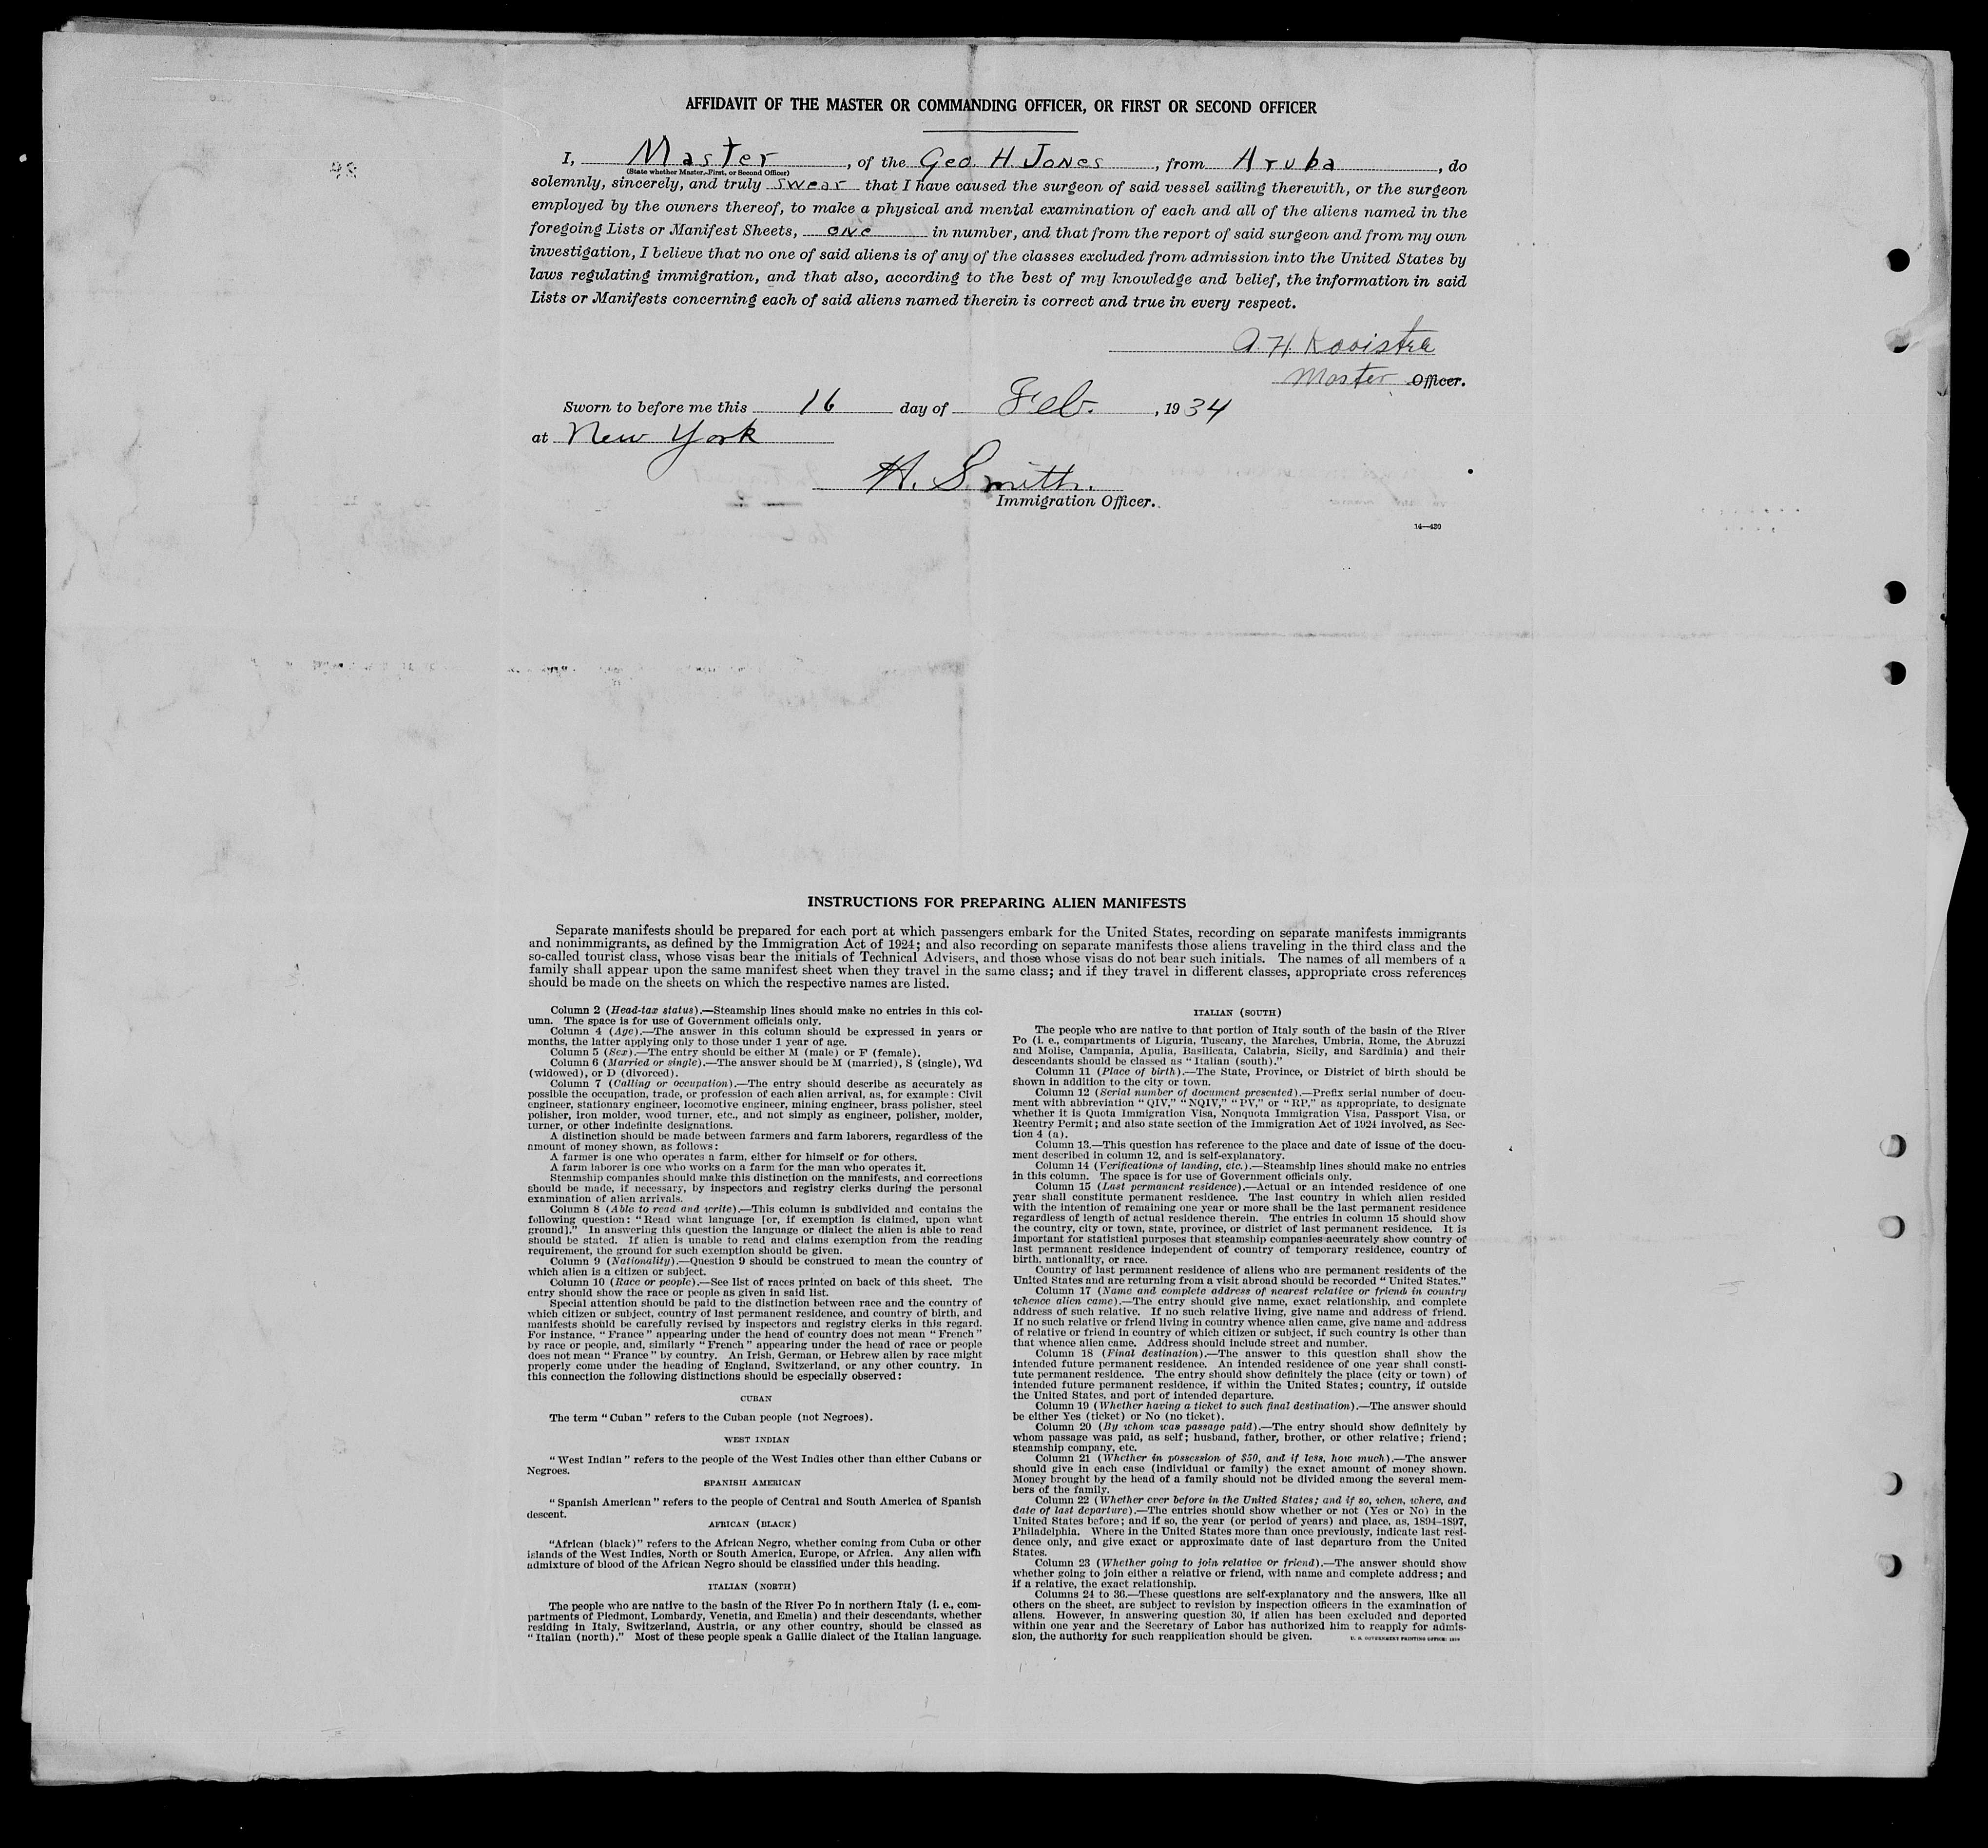 AFFIDAVIT OF THE MASTER OR COMMANDING OFFICER, OR FIRST OR SECOND OFFICER
I, Master, of the Geo. H. Jones, from Aruba, do
(State whether Master, First, or Second Officer)
solemnly, sincerely, and truly swear that I have caused the surgeon of said vessel sailing therewith, or the surgeon
employed by the owners thereof, to make a physical and mental examination of each and all of the aliens named in the
foregoing Lists or Manifest Sheets, one in number, and that from the report of said surgeon and from my own
investigation, I believe that no one of said aliens is of any of the classes excluded from admission into the United States by
laws regulating immigration, and that also, according to the best of my knowledge and belief, the information in said
Lists or Manifests concerning each of said aliens named therein is correct and true in every respect.
A. H. Kooistra
Master Officer.
Sworn to before me this 16 day of Feb., 1934
at New York
H. Smith.
Immigration Officer.
14—430
INSTRUCTIONS FOR PREPARING ALIEN MANIFESTS
Separate manifests should be prepared for each port at which passengers embark for the United States, recording on separate manifests immigrants
and nonimmigrants, as defined by the Immigration Act of 1924; and also recording on separate manifests those aliens traveling in the third class and the
so-called tourist class, whose visas bear the initials of Technical Advisers, and those whose visas do not bear such initials. The names of all members of a
family shall appear upon the same manifest sheet when they travel in the same class; and if they travel in different classes, appropriate cross references
should be made on the sheets on which the respective names are listed.
Column 2 (Head-tax status).—Steamship lines should make no entries in this col-
umn. The space is for use of Government officials only.
Column 4 (Age).—The answer in this column should be expressed in years or
months, the latter applying only to those under 1 year of age.
Column 5 (Sex).—The entry should be either M (male) or F (female).
Column 6 (Married or single).—The answer should be M (married), S (single), Wd
(widowed), or D (divorced).
Column 7 (Calling or occupation).—The entry should describe as accurately as
possible the occupation, trade, or profession of each alien arrival, as, for example: Civil
engineer, stationary engineer, locomotive engineer, mining engineer, brass polisher, steel
polisher, iron molder, wood turner, etc., and not simply as engineer, polisher, molder,
turner, or other indefinite designations.
A distinction should be made between farmers and farm laborers, regardless of the
amount of money shown, as follows:
A farmer is one who operates a farm, either for himself or for others.
A farm laborer is one who works on a farm for the man who operates it.
Steamship companies should make this distinction on the manifests, and corrections
should be made, if necessary, by inspectors and registry clerks during the personal
examination of alien arrivals.
Column 8 (Able to read and write).—This column is subdivided and contains the
following question: "Read what language [or, if exemption is claimed, upon what
ground]." In answering this question the language or dialect the alien is able to read
should be stated. If alien is unable to read and claims exemption from the reading
requirement, the ground for such exemption should be given.
Column 9 (Nationality).—Question 9 should be construed to mean the country of
which alien is a citizen or subject.
Column 10 (Race or people).—See list of races printed on back of this sheet. The
entry should show the race or people as given in said list.
Special attention should be paid to the distinction between race and the country of
which citizen or subject, country of last permanent residence, and country of birth, and
manifests should be carefully revised by inspectors and registry clerks in this regard.
For instance, "France" appearing under the head of country does not mean "French"
by race or people, and, similarly "French" appearing under the head of race or people
does not mean "France" by country. An Irish, German, or Hebrew alien by race might
properly come under the heading of England, Switzerland, or any other country. In
this connection the following distinctions should be especially observed:
CUBAN
The term "Cuban" refers to the Cuban people (not Negroes).
WEST INDIAN
"West Indian" refers to the people of the West Indies other than either Cubans or
Negroes.
SPANISH AMERICAN
"Spanish American" refers to the people of Central and South America of Spanish
descent.
AFRICAN (BLACK)
"African (black)" refers to the African Negro, whether coming from Cuba or other
islands of the West Indies, North or South America, Europe, or Africa. Any alien with
admixture of blood of the African Negro should be classified under this heading.
ITALIAN (NORTH)
The people who are native to the basin of the River Po in northern Italy (i. e., com-
partments of Piedmont, Lombardy, Venetia, and Emelia) and their descendants, whether
residing in Italy, Switzerland, Austria, or any other country, should be classed as
"Italian (north)." Most of these people speak a Gallic dialect of the Italian language.
ITALIAN (SOUTH)
The people who are native to that portion of Italy south of the basin of the River
Po (i. e., compartments of Liguria, Tuscany, the Marches, Umbria, Rome, the Abruzzi
and Molise, Campania, Apulia, Basilicata, Calabria, Sicily, and Sardinia) and their
descendants should be classed as "Italian (south)."
Column 11 (Place of birth).—The State, Province, or District of birth should be
shown in addition to the city or town.
Column 12 (Serial number of document presented).—Prefix serial number of docu-
ment with abbreviation "QIV," "NQIV," "PV," or "RP," as appropriate, to designate
whether it is Quota Immigration Visa, Nonquota Immigration Visa, Passport Visa, or
Reentry Permit; and also state section of the Immigration Act of 1924 involved, as Sec-
tion 4 (a).
Column 13.—This question has reference to the place and date of issue of the docu-
ment described in column 12, and is self-explanatory.
Column 14 (Verifications of landing, etc.).—Steamship lines should make no entries
in this column. The space is for use of Government officials only.
Column 15 (Last permanent residence).—Actual or an intended residence of one
year shall constitute permanent residence. The last country in which alien resided
with the intention of remaining one year or more shall be the last permanent residence
regardless of length of actual residence therein. The entries in column 15 should show
the country, city or town, state, province, or district of last permanent residence. It is
important for statistical purposes that steamship companies accurately show country of
last permanent residence independent of country of temporary residence, country of
birth, nationality, or race.
Country of last permanent residence of aliens who are permanent residents of the
United States and are returning from a visit abroad should be recorded "United States."
Column 17 (Name and complete address of nearest relative or friend in country
whence alien came).—The entry should give name, exact relationship, and complete
address of such relative. If no such relative living, give name and address of friend.
If no such relative or friend living in country whence alien came, give name and address
of relative or friend in country of which citizen or subject, if such country is other than
that whence alien came. Address should include street and number.
Column 18 (Final destination).—The answer to this question shall show the
intended future permanent residence. An intended residence of one year shall consti-
tute permanent residence. The entry should show definitely the place (city or town) of
intended future permanent residence, if within the United States; country, if outside
the United States, and port of intended departure.
Column 19 (Whether having a ticket to such final destination).—The answer should
be either Yes (ticket) or No (no ticket).
Column 20 (By whom was passage paid).—The entry should show definitely by
whom passage was paid, as self; husband, father, brother, or other relative; friend;
steamship company, etc.
Column 21 (Whether in possession of $50, and if less, how much).—The answer
should give in each case (individual or family) the exact amount of money shown.
Money brought by the head of a family should not be divided among the several mem-
bers of the family.
Column 22 (Whether ever before in the United States; and if so, when, where, and
date of last departure).—The entries should show whether or not (Yes or No) in the
United States before; and if so, the year (or period of years) and place, as, 1894–1897,
Philadelphia. Where in the United States more than once previously, indicate last resi-
dence only, and give exact or approximate date of last departure from the United
States.
Column 23 (Whether going to join relative or friend).—The answer should show
whether going to join either a relative or friend, with name and complete address; and
if a relative, the exact relationship.
Columns 24 to 36.—These questions are self-explanatory and the answers, like all
others on the sheet, are subject to revision by inspection officers in the examination of
aliens. However, in answering question 30, if alien has been excluded and deported
within one year and the Secretary of Labor has authorized him to reapply for admis-
sion, the authority for such reapplication should be given.
U. S. GOVERNMENT PRINTING OFFICE